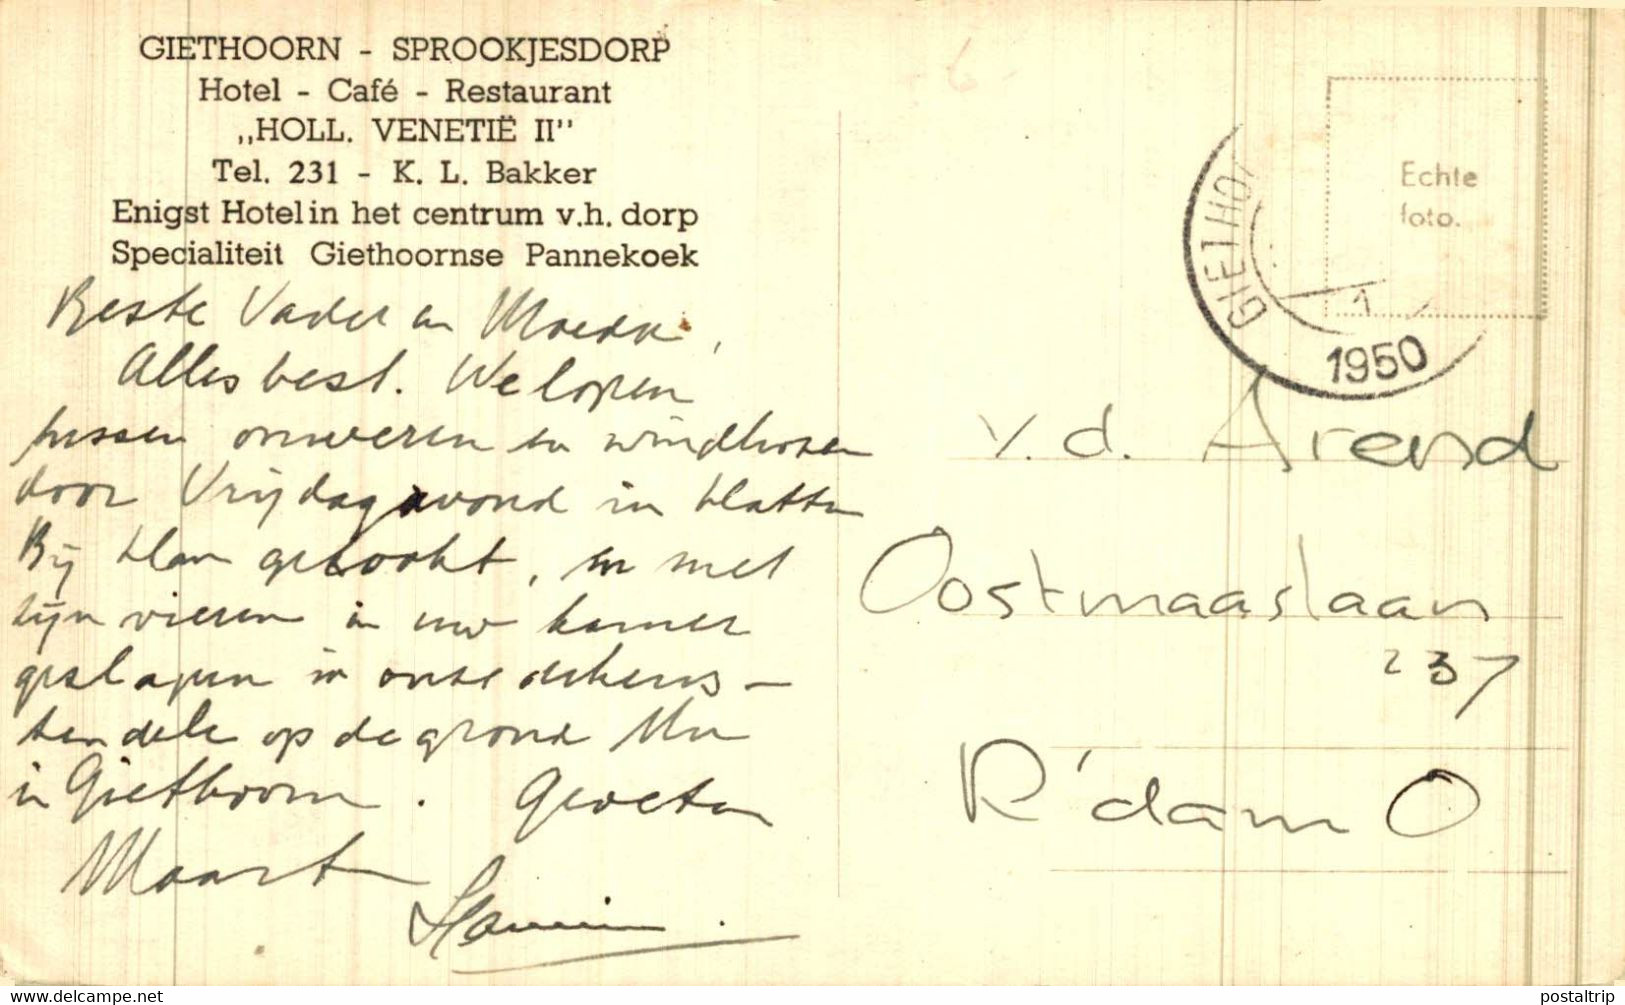 GIETHOORN - SPROOKJESDORP
Hotel - Café - Restaurant
„HOLL. VENETIË II"
Tel. 231 - K. L. Bakker
Enigst Hotel in het centrum v.h. dorp
Specialiteit Giethoornse Pannekoek
Beste Vader en Moeder,
Alles best. We lopen
tussen onweren en windhozen
door Vrijdagavond in
Bij gekookt, en met
zijn vieren in uw kamer
geslapen in onze dekens -
op de grond Nu
in Giethoorn. Groeten
Maarten
Echte
foto.
GIETHO
1
1950
v.d. Arend
Oostmaaslaan
237
R'dam O
postaltrip
www.delcampe.net